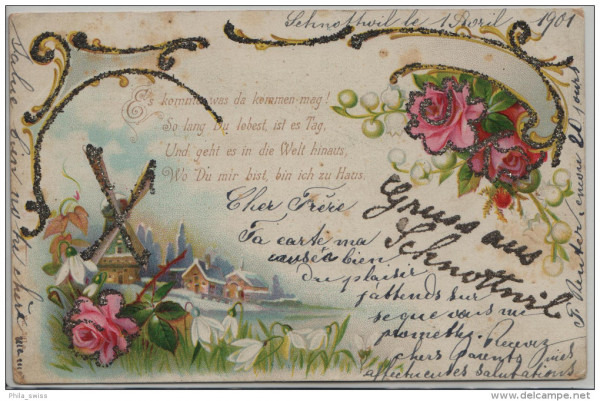 Schnottwil le 1 Avril 1901
Es komme was da kommen mag!
So lang Du lebest, ist es Tag,
Und geht es in die Welt hinaus,
Wo Du mir bist, bin ich zu Haus.
Gruss aus
Schnottwil
Cher Frère
Ta carte ma
causée bien
du plaisir
j'attends sur
se que vous mi
prometté. Recevez
chers parents mes
affectueuses salutations
F. Reuter encore 20 jours
Salue bien
Phila_swiss
delcampe.net